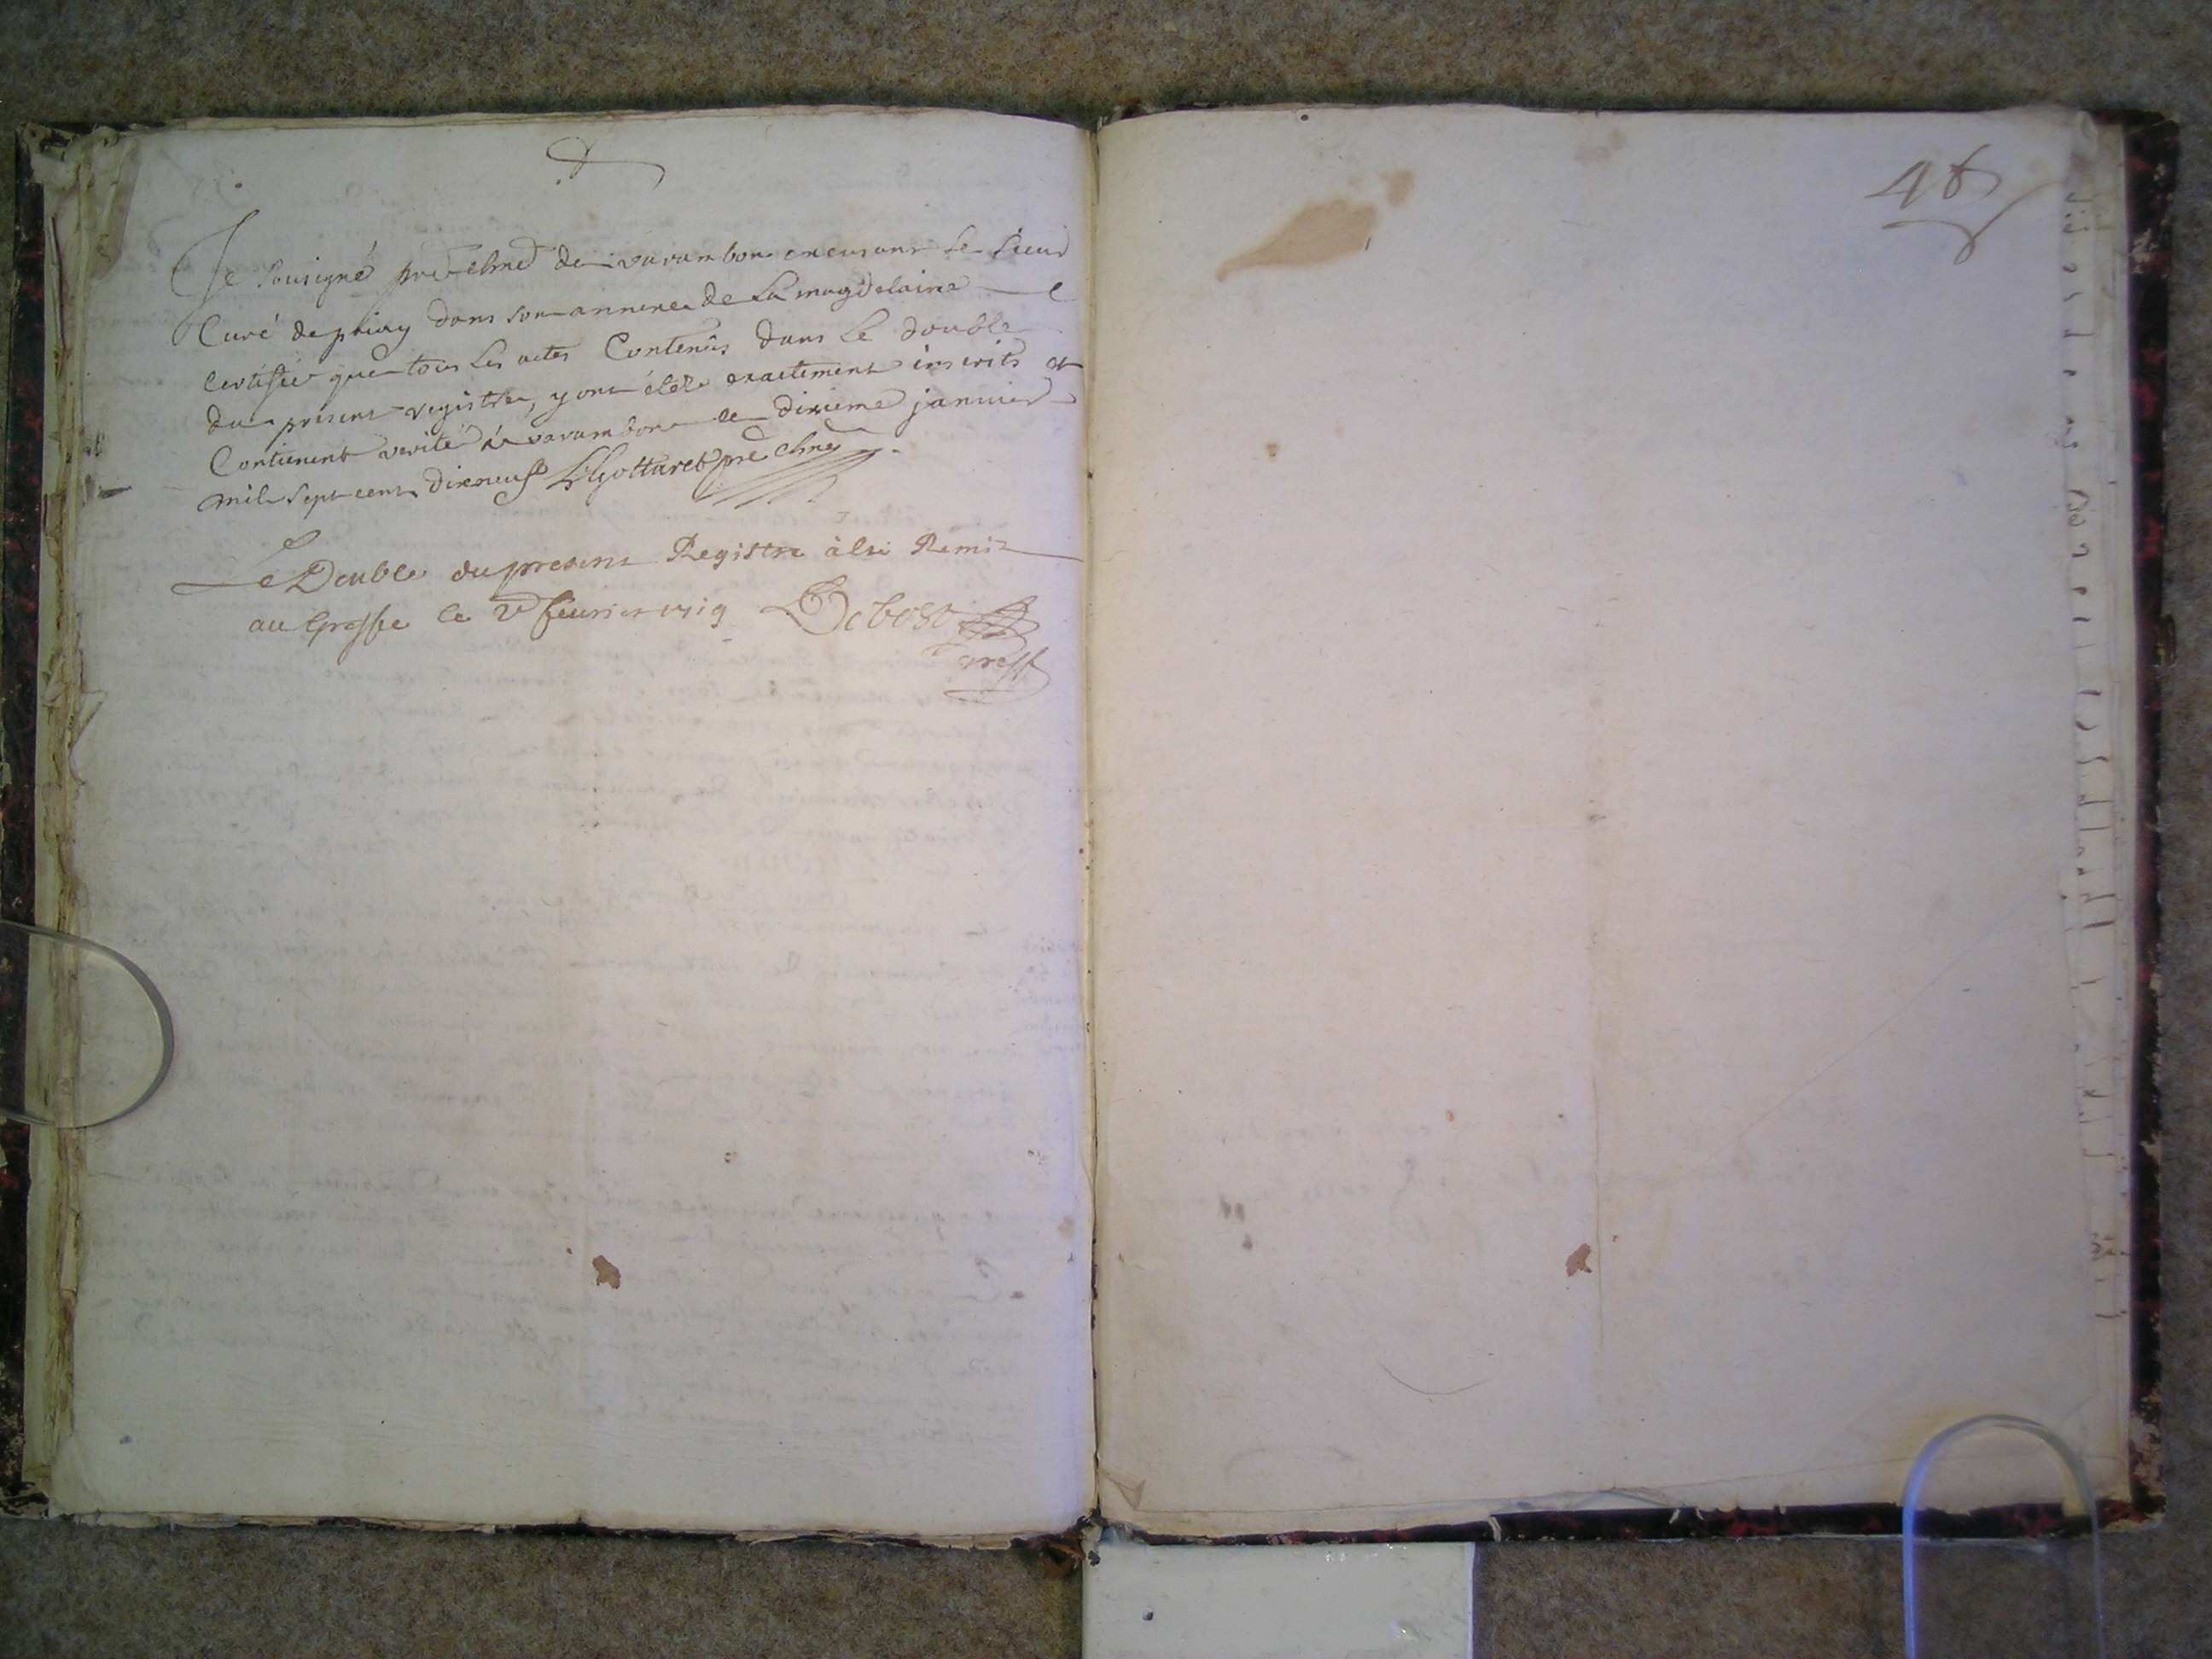 Je Sousigné pre chne de varambon excusant le sieur
Curé de priay dans son annexe de la magdelaine
Certifie que tous les actes Contenus dans le double
du present registre, y ont étéz exactement inscrits et
Contienent verité à varambon le dixieme janvier
mil sept cent dixneuf Gottaret pre chne
Le Double du present Registre à esté Remis
au Greffe le 2e feurier 1719 Debost
greff
46